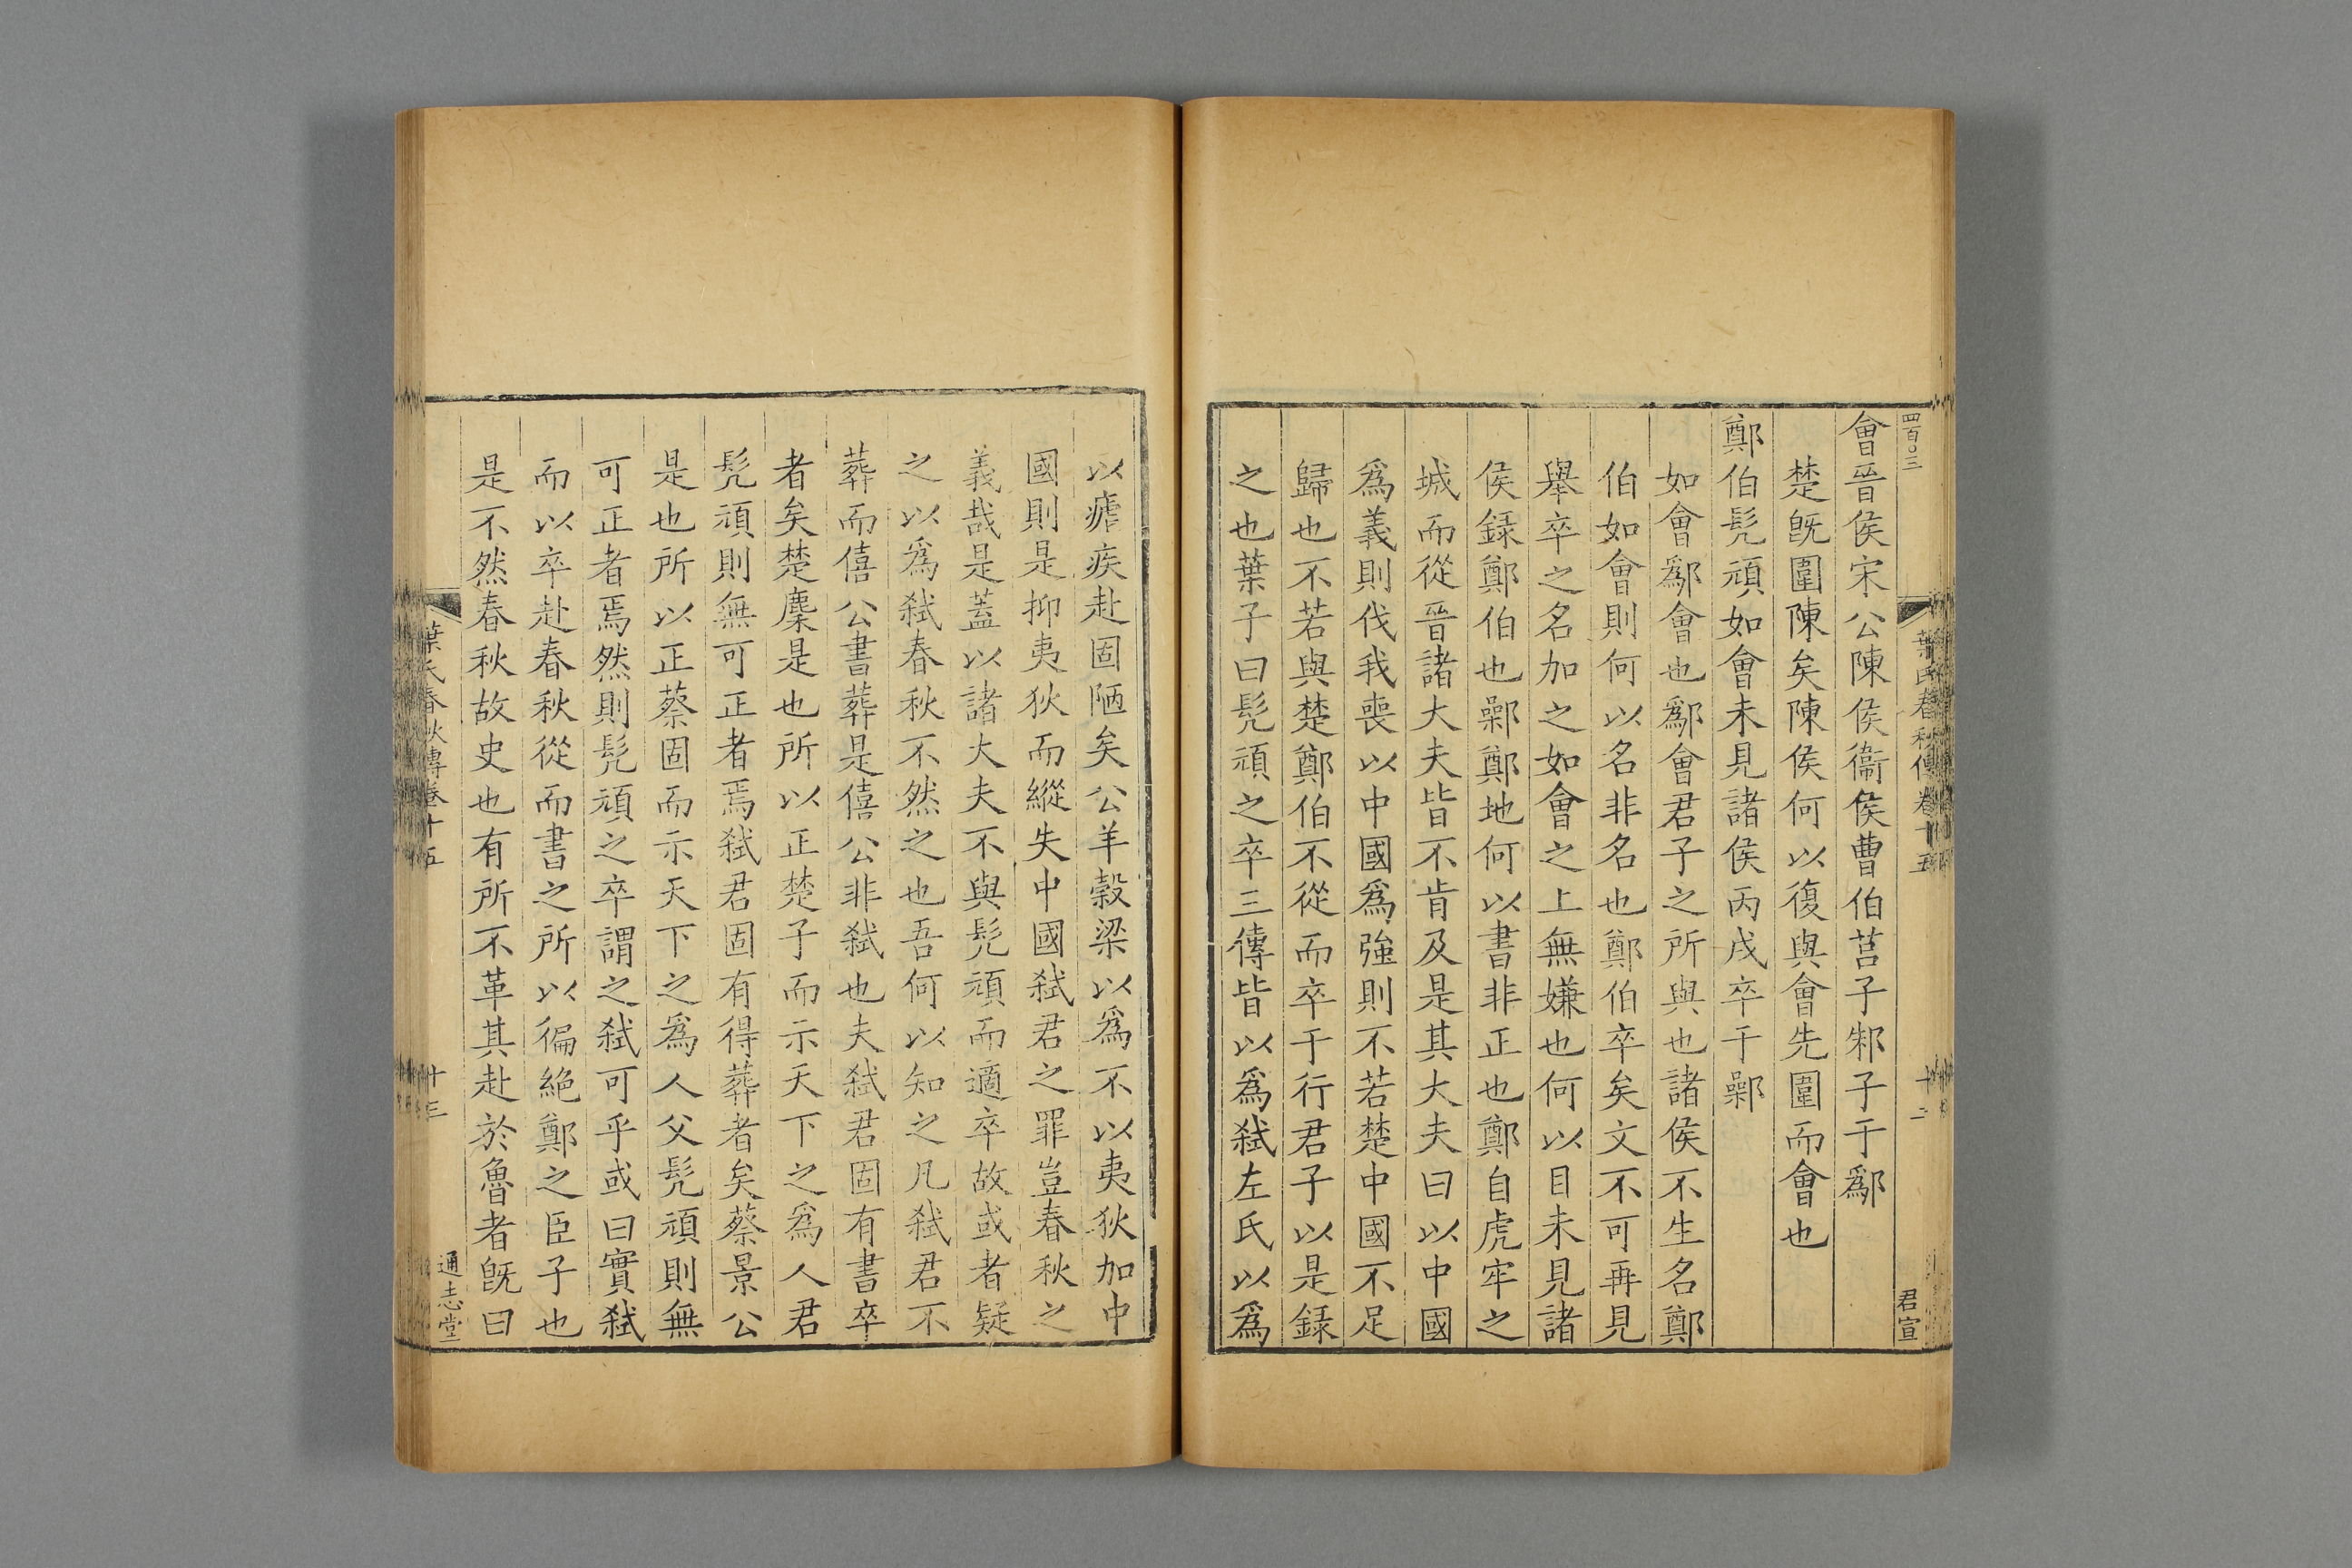 四百〇三
葉氏春秋傳卷十五
十二
君宣
會晉侯宋公陳侯衞侯曹伯莒子邾子于鄬
楚旣圍陳矣陳侯何以復與會先圍而會也
鄭伯髠頑如會未見諸侯丙戌卒于鄵
如會鄬會也鄬會君子之所與也諸侯不生名鄭
伯如會則何以名非名也鄭伯卒矣文不可再見
舉卒之名加之如會之上無嫌也何以目未見諸
侯録鄭伯也鄵鄭地何以書非正也鄭自虎牢之
城而從晉諸大夫皆不肯及是其大夫曰以中國
爲義則伐我喪以中國爲強則不若楚中國不足
歸也不若與楚鄭伯不從而卒于行君子以是録
之也葉子曰髠頑之卒三傳皆以爲弑左氏以爲
以瘧疾赴固陋矣公羊穀梁以爲不以夷狄加中
國則是抑夷狄而縱失中國弑君之罪豈春秋之
義哉是蓋以諸大夫不與髠頑而適卒故或者疑
之以爲弑春秋不然之也吾何以知之凡弑君不
葬而僖公書葬是僖公非弑也夫弑君固有書卒
者矣楚麇是也所以正楚子而示天下之爲人君
髠頑則無可正者焉弑君固有得葬者矣蔡景公
是也所以正蔡固而示天下之爲人父髠頑則無
可正者焉然則髠頑之卒謂之弑可乎或曰實弑
而以卒赴春秋從而書之所以徧絕鄭之臣子也
是不然春秋故史也有所不革其赴於魯者旣曰
葉氏春秋傳卷十五
十三
通志堂